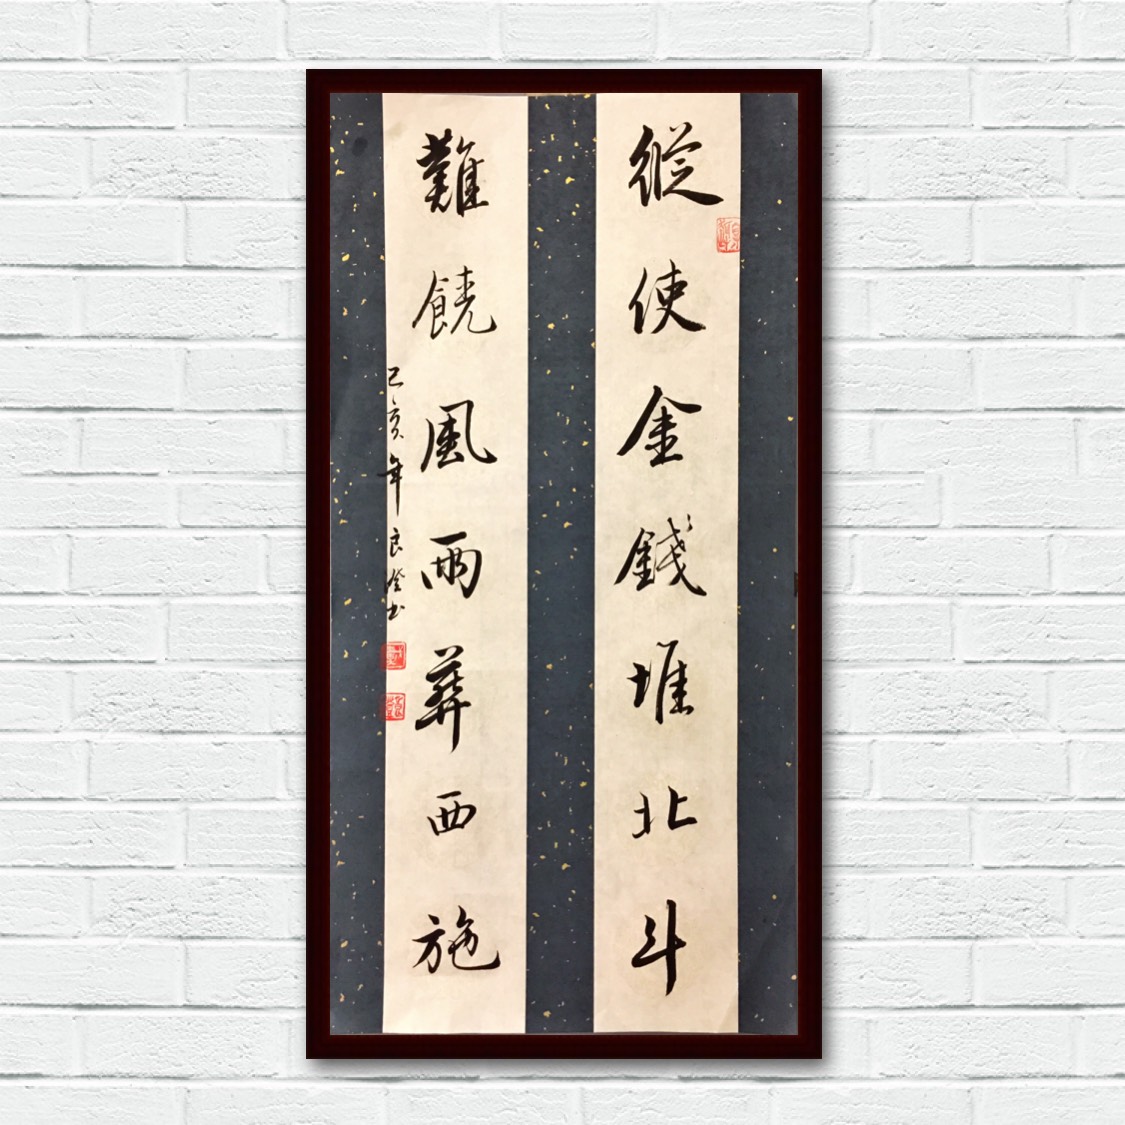 縱使金錢堆北斗
難饒風雨葬西施
己亥年良燈書